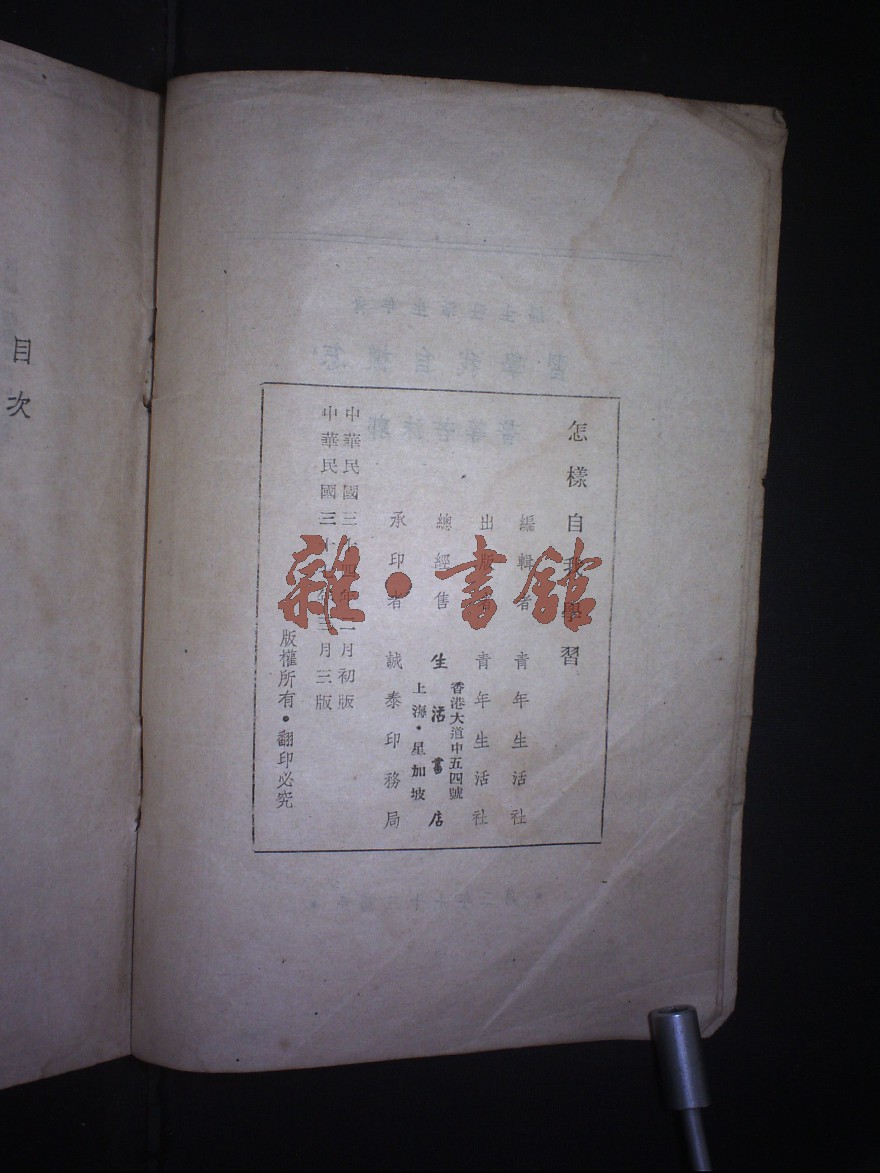 怎樣自我學習
編輯者 青年生活社
出版者 青年生活社
總經售 生活書店
香港大道中五四號
上海・星加坡
承印者 誠泰印務局
中華民國三十四年 月初版
中華民國三十七年三月三版
版權所有・翻印必究
目次
雜・書館